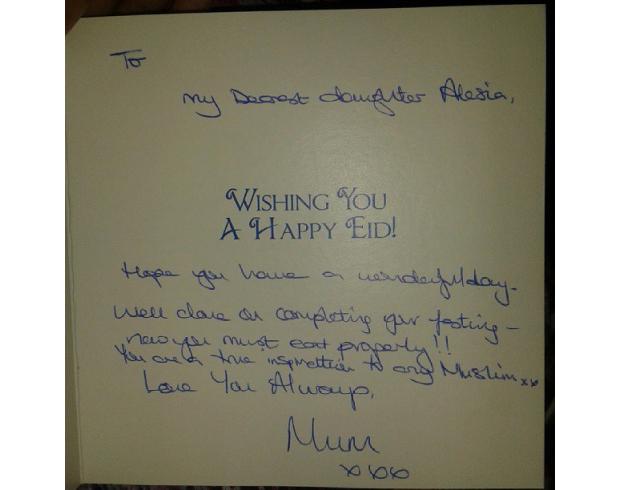 To
My Dearest daughter Alesia,
WISHING YOU
A HAPPY EID!
Hope you have a wonderful day.
Well done on completing your fasting –
now you must eat properly!!
You are a true inspiration to any Muslim xx
Love You Always,
Mum
xxx